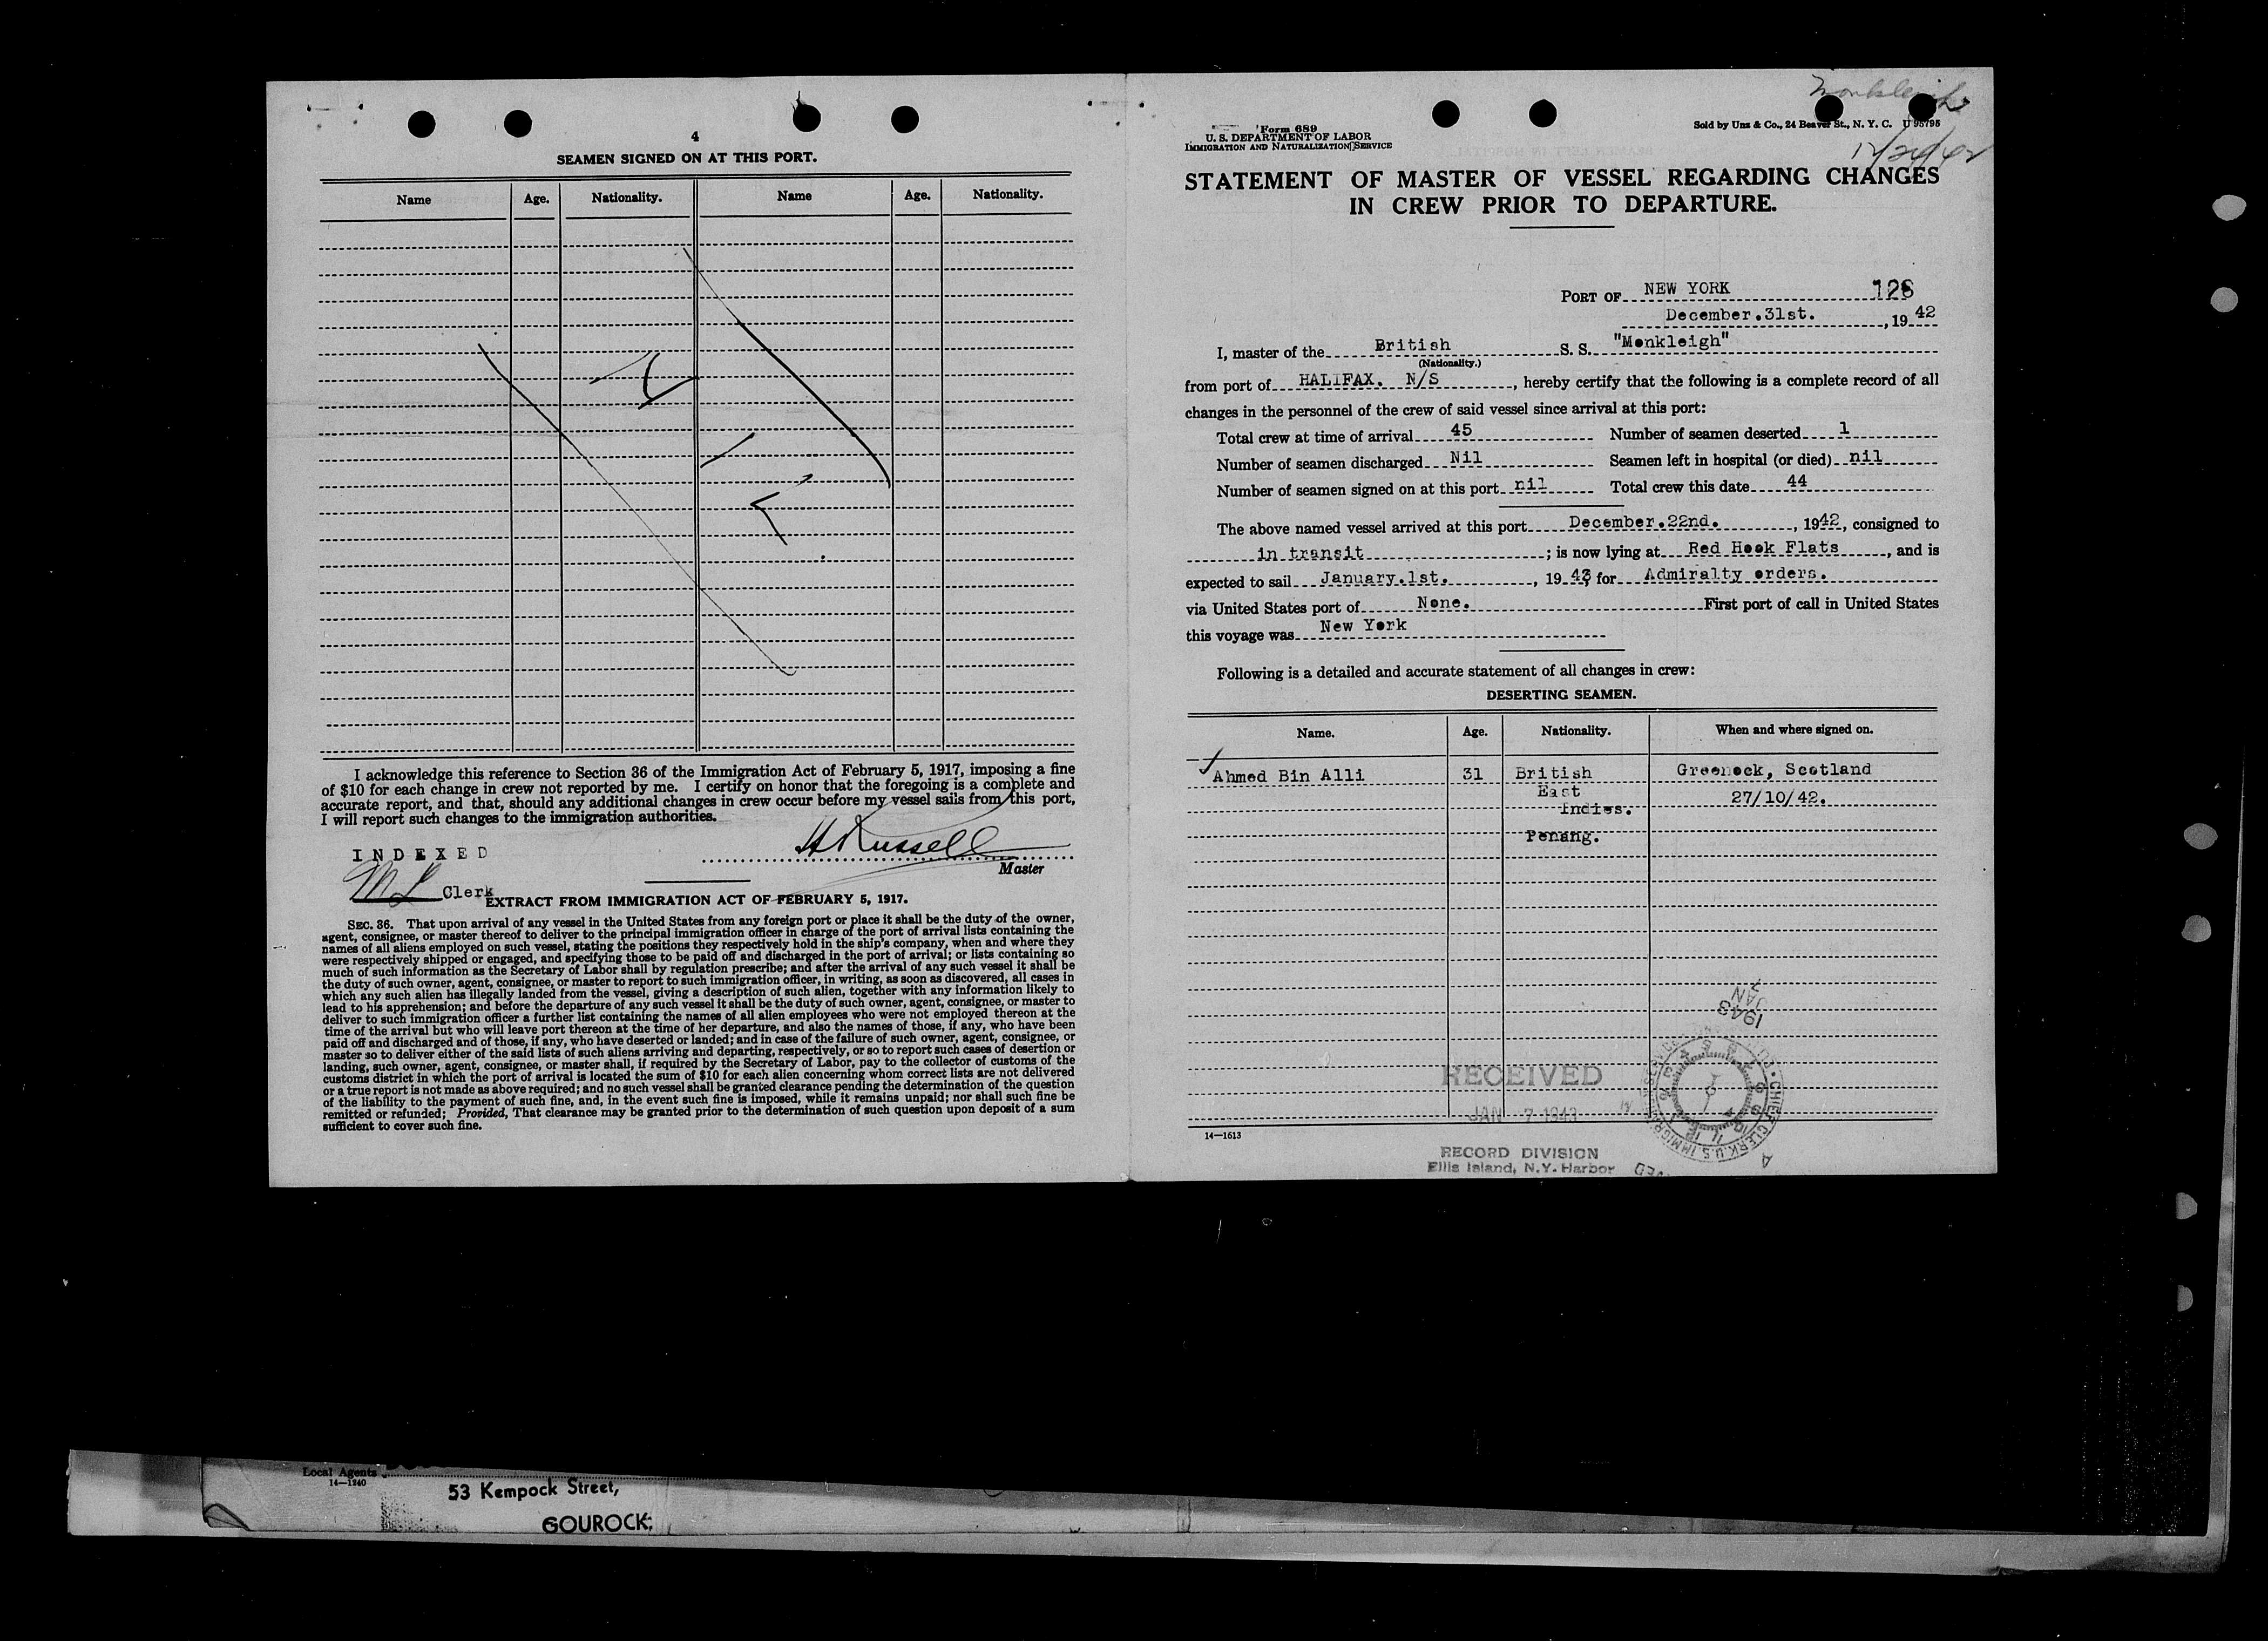 4
SEAMEN SIGNED ON AT THIS PORT.
Name Age. Nationality. Name Age. Nationality.
I acknowledge this reference to Section 36 of the Immigration Act of February 5, 1917, imposing a fine
of $10 for each change in crew not reported by me. I certify on honor that the foregoing is a complete and
accurate report, and that, should any additional changes in crew occur before my vessel sails from this port,
I will report such changes to the immigration authorities.
H Russell
Master
INDEXED
ML Clerk
EXTRACT FROM IMMIGRATION ACT OF FEBRUARY 5, 1917.
SEC. 36. That upon arrival of any vessel in the United States from any foreign port or place it shall be the duty of the owner,
agent, consignee, or master thereof to deliver to the principal immigration officer in charge of the port of arrival lists containing the
names of all aliens employed on such vessel, stating the positions they respectively hold in the ship's company, when and where they
were respectively shipped or engaged, and specifying those to be paid off and discharged in the port of arrival; or lists containing so
much of such information as the Secretary of Labor shall by regulation prescribe; and after the arrival of any such vessel it shall be
the duty of such owner, agent, consignee, or master to report to such immigration officer, in writing, as soon as discovered, all cases in
which any such alien has illegally landed from the vessel, giving a description of such alien, together with any information likely to
lead to his apprehension; and before the departure of any such vessel it shall be the duty of such owner, agent, consignee, or master to
deliver to such immigration officer a further list containing the names of all alien employees who were not employed thereon at the
time of the arrival but who will leave port thereon at the time of her departure, and also the names of those, if any, who have been
paid off and discharged and of those, if any, who have deserted or landed; and in case of the failure of such owner, agent, consignee, or
master so to deliver either of the said lists of such aliens arriving and departing, respectively, or so to report such cases of desertion or
landing, such owner, agent, consignee, or master shall, if required by the Secretary of Labor, pay to the collector of customs of the
customs district in which the port of arrival is located the sum of $10 for each alien concerning whom correct lists are not delivered
or a true report is not made as above required; and no such vessel shall be granted clearance pending the determination of the question
of the liability to the payment of such fine, and, in the event such fine is imposed, while it remains unpaid; nor shall such fine be
remitted or refunded; Provided, That clearance may be granted prior to the determination of such question upon deposit of a sum
sufficient to cover such fine.
Monkleigh
12/24/42
Form 689
U. S. DEPARTMENT OF LABOR
IMMIGRATION AND NATURALIZATION SERVICE
Sold by Unz & Co., 24 Beaver St., N. Y. C. U 95795
STATEMENT OF MASTER OF VESSEL REGARDING CHANGES
IN CREW PRIOR TO DEPARTURE.
PORT OF NEW YORK 126
December.31st. , 19 42
I, master of the British S. S. "Monkleigh"
(Nationality.)
from port of HALIFAX. N/S , hereby certify that the following is a complete record of all
changes in the personnel of the crew of said vessel since arrival at this port:
Total crew at time of arrival 45 Number of seamen deserted 1
Number of seamen discharged Nil Seamen left in hospital (or died) nil
Number of seamen signed on at this port nil Total crew this date 44
The above named vessel arrived at this port December.22nd. , 1942, consigned to
in transit ; is now lying at Red Hook Flats , and is
expected to sail January.1st. , 19 43 for Admiralty orders.
via United States port of None. First port of call in United States
this voyage was New York
Following is a detailed and accurate statement of all changes in crew:
DESERTING SEAMEN.
Name. Age. Nationality. When and where signed on.
Ahmed Bin Alli 31 British Greenock, Scotland
East 27/10/42.
Indies.
Penang.
1943
JAN
7
RECEIVED
JAN 7 1943
CHIEF CLERK, U.S. IMMIGR
14—1613
RECORD DIVISION
Ellis Island, N.Y. Harbor
Local Agents
14—1240
53 Kempock Street,
GOUROCK.